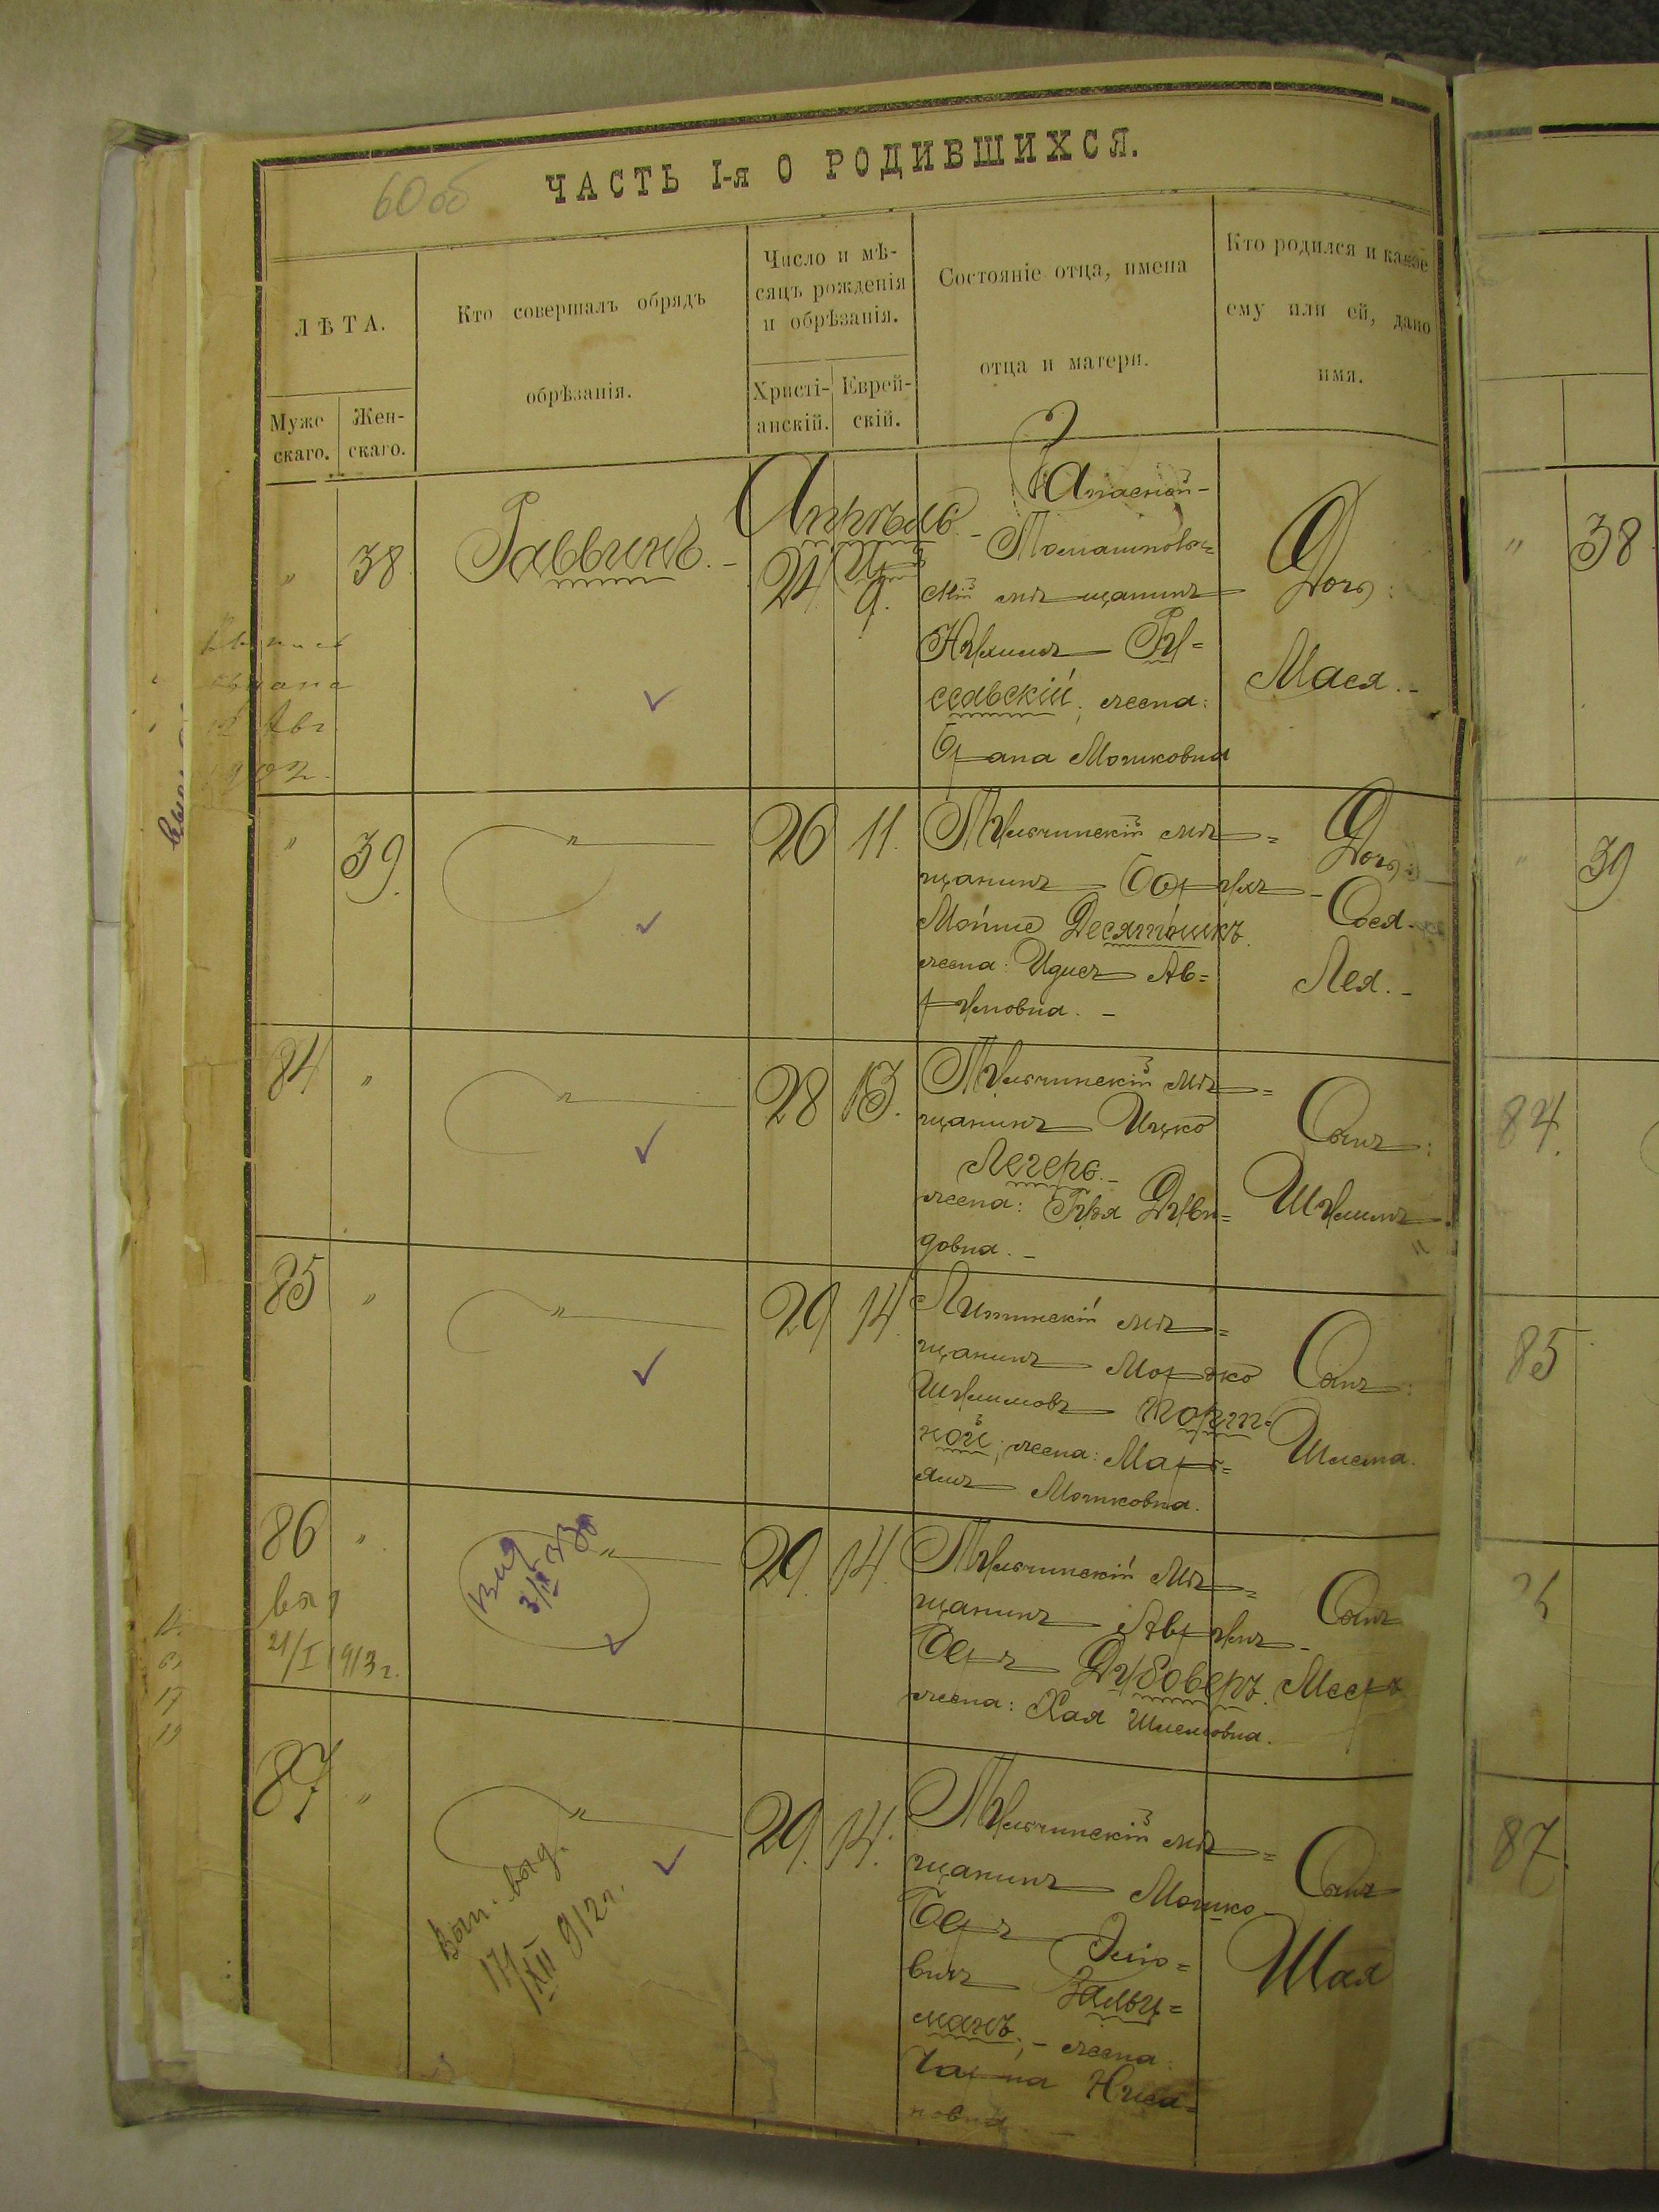 60 об
ЧАСТЬ I-я О РОДИВШИХСЯ.
ЛѢТА.
Муже
скаго.
Жен-
скаго.
Кто совершалъ обрядъ
обрѣзанія.
Число и мѣ-
сяцъ рожденія
и обрѣзанія.
Христі-
анскій.
Еврей-
скій.
Состояніе отца, имена
отца и матери.
Кто родился и какое
ему или ей, дано
имя.
" 38
Раввинъ. -
Апрѣль
24 9.
Томашполь=
скій мѣщанинъ
Нухимъ Ру=
ссавскій, жена:
Мошковна
Дочь:
Мася. -
Авг
" 39.
"
26 11.
Тульчинскій мѣ=
щанинъ Борухъ -
Мойше Десятникъ.
жена: Идесъ Ав=
румовна. -
Дочь:
Сося -
Лея. -
84 "
"
28 13.
Тульчинскій мѣ=
щанинъ Ицко
Легеръ. -
жена: Гуря Дуви=
довна. -
Сынъ:
Шулимъ
85 "
"
29 14.
Литинскій мѣ=
щанинъ Мордко
Шулимовъ Порт=
ной; жена: Марь=
ямъ Мошковна.
Сынъ:
Шлема.
86 "
выд
21/I 1913 г.
"
29. 14.
Тульчинскій мѣ=
щанинъ Аврумъ -
Беръ Дубоверъ.
жена: Хая Шлемовна.
Сынъ
Мееръ
87 "
"
Вып. выд.
17/XII 912 г.
29. 14.
Тульчинскій мѣ=
щанинъ Мошко -
Беръ Эліо=
вичъ Зальц=
манъ; - жена:
Чарна Ниса=
новна
Сынъ
Шая
" 38
" 39
84.
85
87.